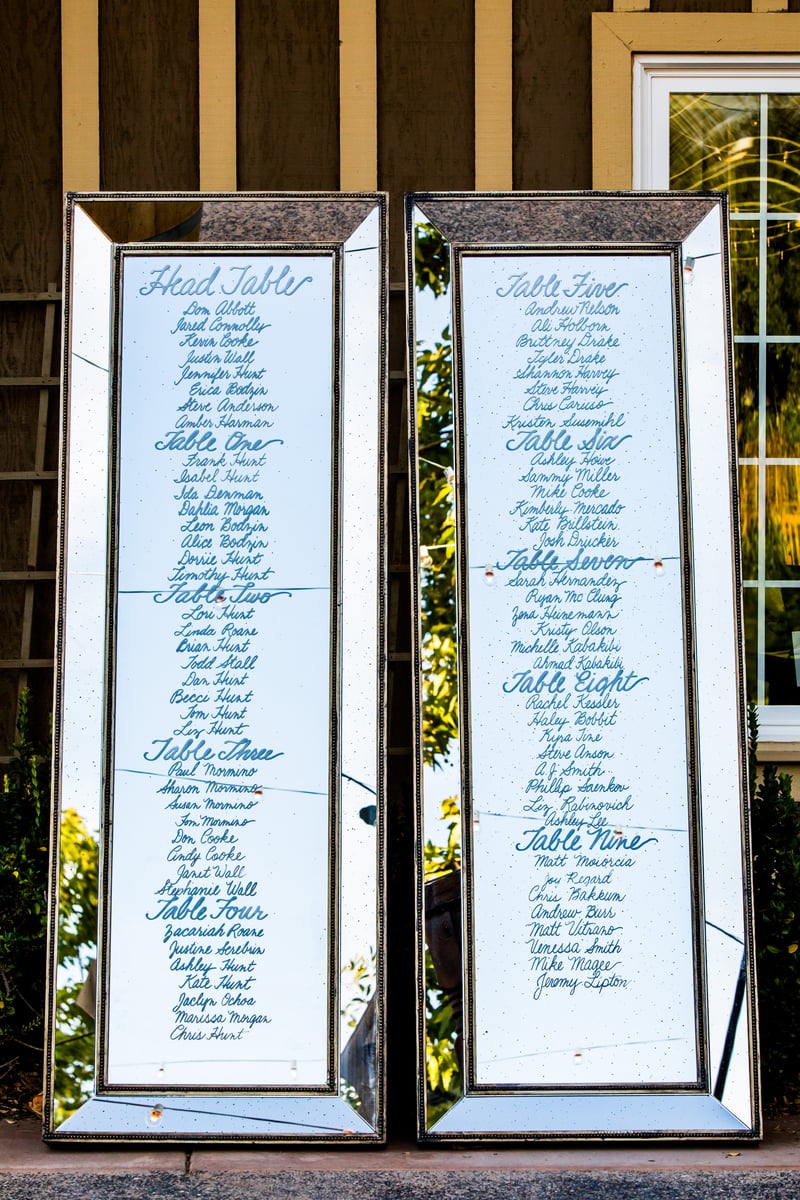 Head Table
Dom Abbott
Jared Connolly
Kevin Cooke
Justin Wall
Jennifer Hunt
Erica Bodzin
Steve Anderson
Amber Harman
Table One
Frank Hunt
Isabel Hunt
Ida Denman
Dahlia Morgan
Leon Bodzin
Alice Bodzin
Dorrie Hunt
Timothy Hunt
Table Two
Lori Hunt
Linda Roane
Brian Hunt
Todd Stall
Dan Hunt
Becci Hunt
Tom Hunt
Liz Hunt
Table Three
Paul Mormino
Sharon Mormino
Susan Mormino
Tom Mormino
Don Cooke
Cindy Cooke
Janet Wall
Stephanie Wall
Table Four
Zacariah Roane
Justine Serebrin
Ashley Hunt
Kate Hunt
Jaclyn Ochoa
Marissa Morgan
Chris Hunt
Table Five
Andrew Nelson
Ali Holborn
Brittney Drake
Tyler Drake
Shannon Harvey
Steve Harvey
Chris Caruso
Kristen Susemihl
Table Six
Ashley Howe
Sammy Miller
Mike Cooke
Kimberly Mercado
Kate Brillstein
Josh Drucker
Table Seven
Sarah Hernandez
Ryan Mc Clung
Zena Heinemann
Kristy Olson
Michelle Kabakibi
Ahmad Kabakibi
Table Eight
Rachel Kessler
Haley Bobbit
Kyra Tine
Steve Anson
AJ Smith
Phillip Saenkov
Liz Rabinovich
Ashley Lee
Table Nine
Matt Moiorcia
Chris Bakkum
Andrew Burr
Matt Vitrano
Venessa Smith
Mike Magee
Jeremy Lipton